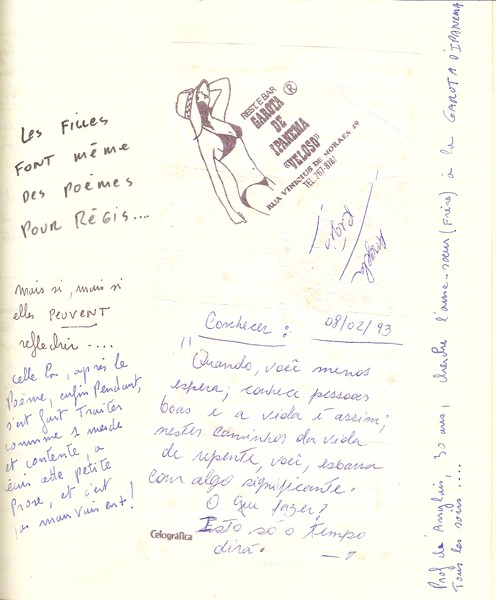 Les Filles
FONT même
DES POÈMES
POUR RÉGIS....
mais si, mais si
elles PEUVENT
refléchir ....
celle là, après le
Poème, enfin Pendant,
s'est fait Traiter
comme 1 merde
et, contente, a
écris cette petite
Prose, et c'est
pas mauvais est!
REST. E BAR
GAROTA
DE
IPANEMA
"VELOSO"
RUA VINICIUS DE MORAES 49
TEL. 267-8787
®
Conhecer: 08/02/93
"Quando, você menos
espera; conhece pessoas
boas e a vida é assim;
nestes caminhos da vida
de repente, você, esbarra
com algo significante.
O que fazer?
Isto só o tempo
dirá.
Celográfica
Prof de Anglais, 30 ans, cherche l'ame-soeur (Frère) à la GAROTA D'IPANEMA
Tous les soirs ....